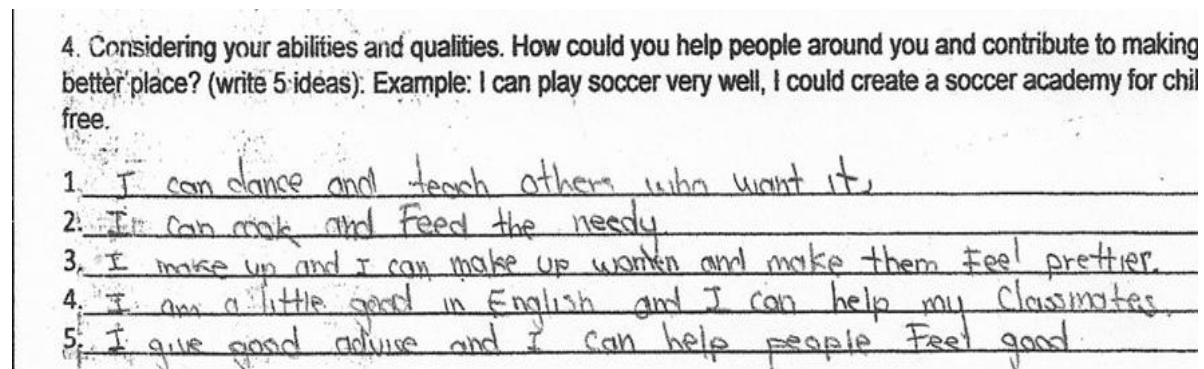 4. Considering your abilities and qualities. How could you help people around you and contribute to making
better place? (write 5 ideas): Example: I can play soccer very well, I could create a soccer academy for chil
free.
1. I can dance and teach others who want it,
2. I can cook and Feed the needy
3. I make up and I can make up women and make them Feel prettier.
4. I am a little good in English and I can help my Classmates.
5. I give good advise and I can help people Feel good